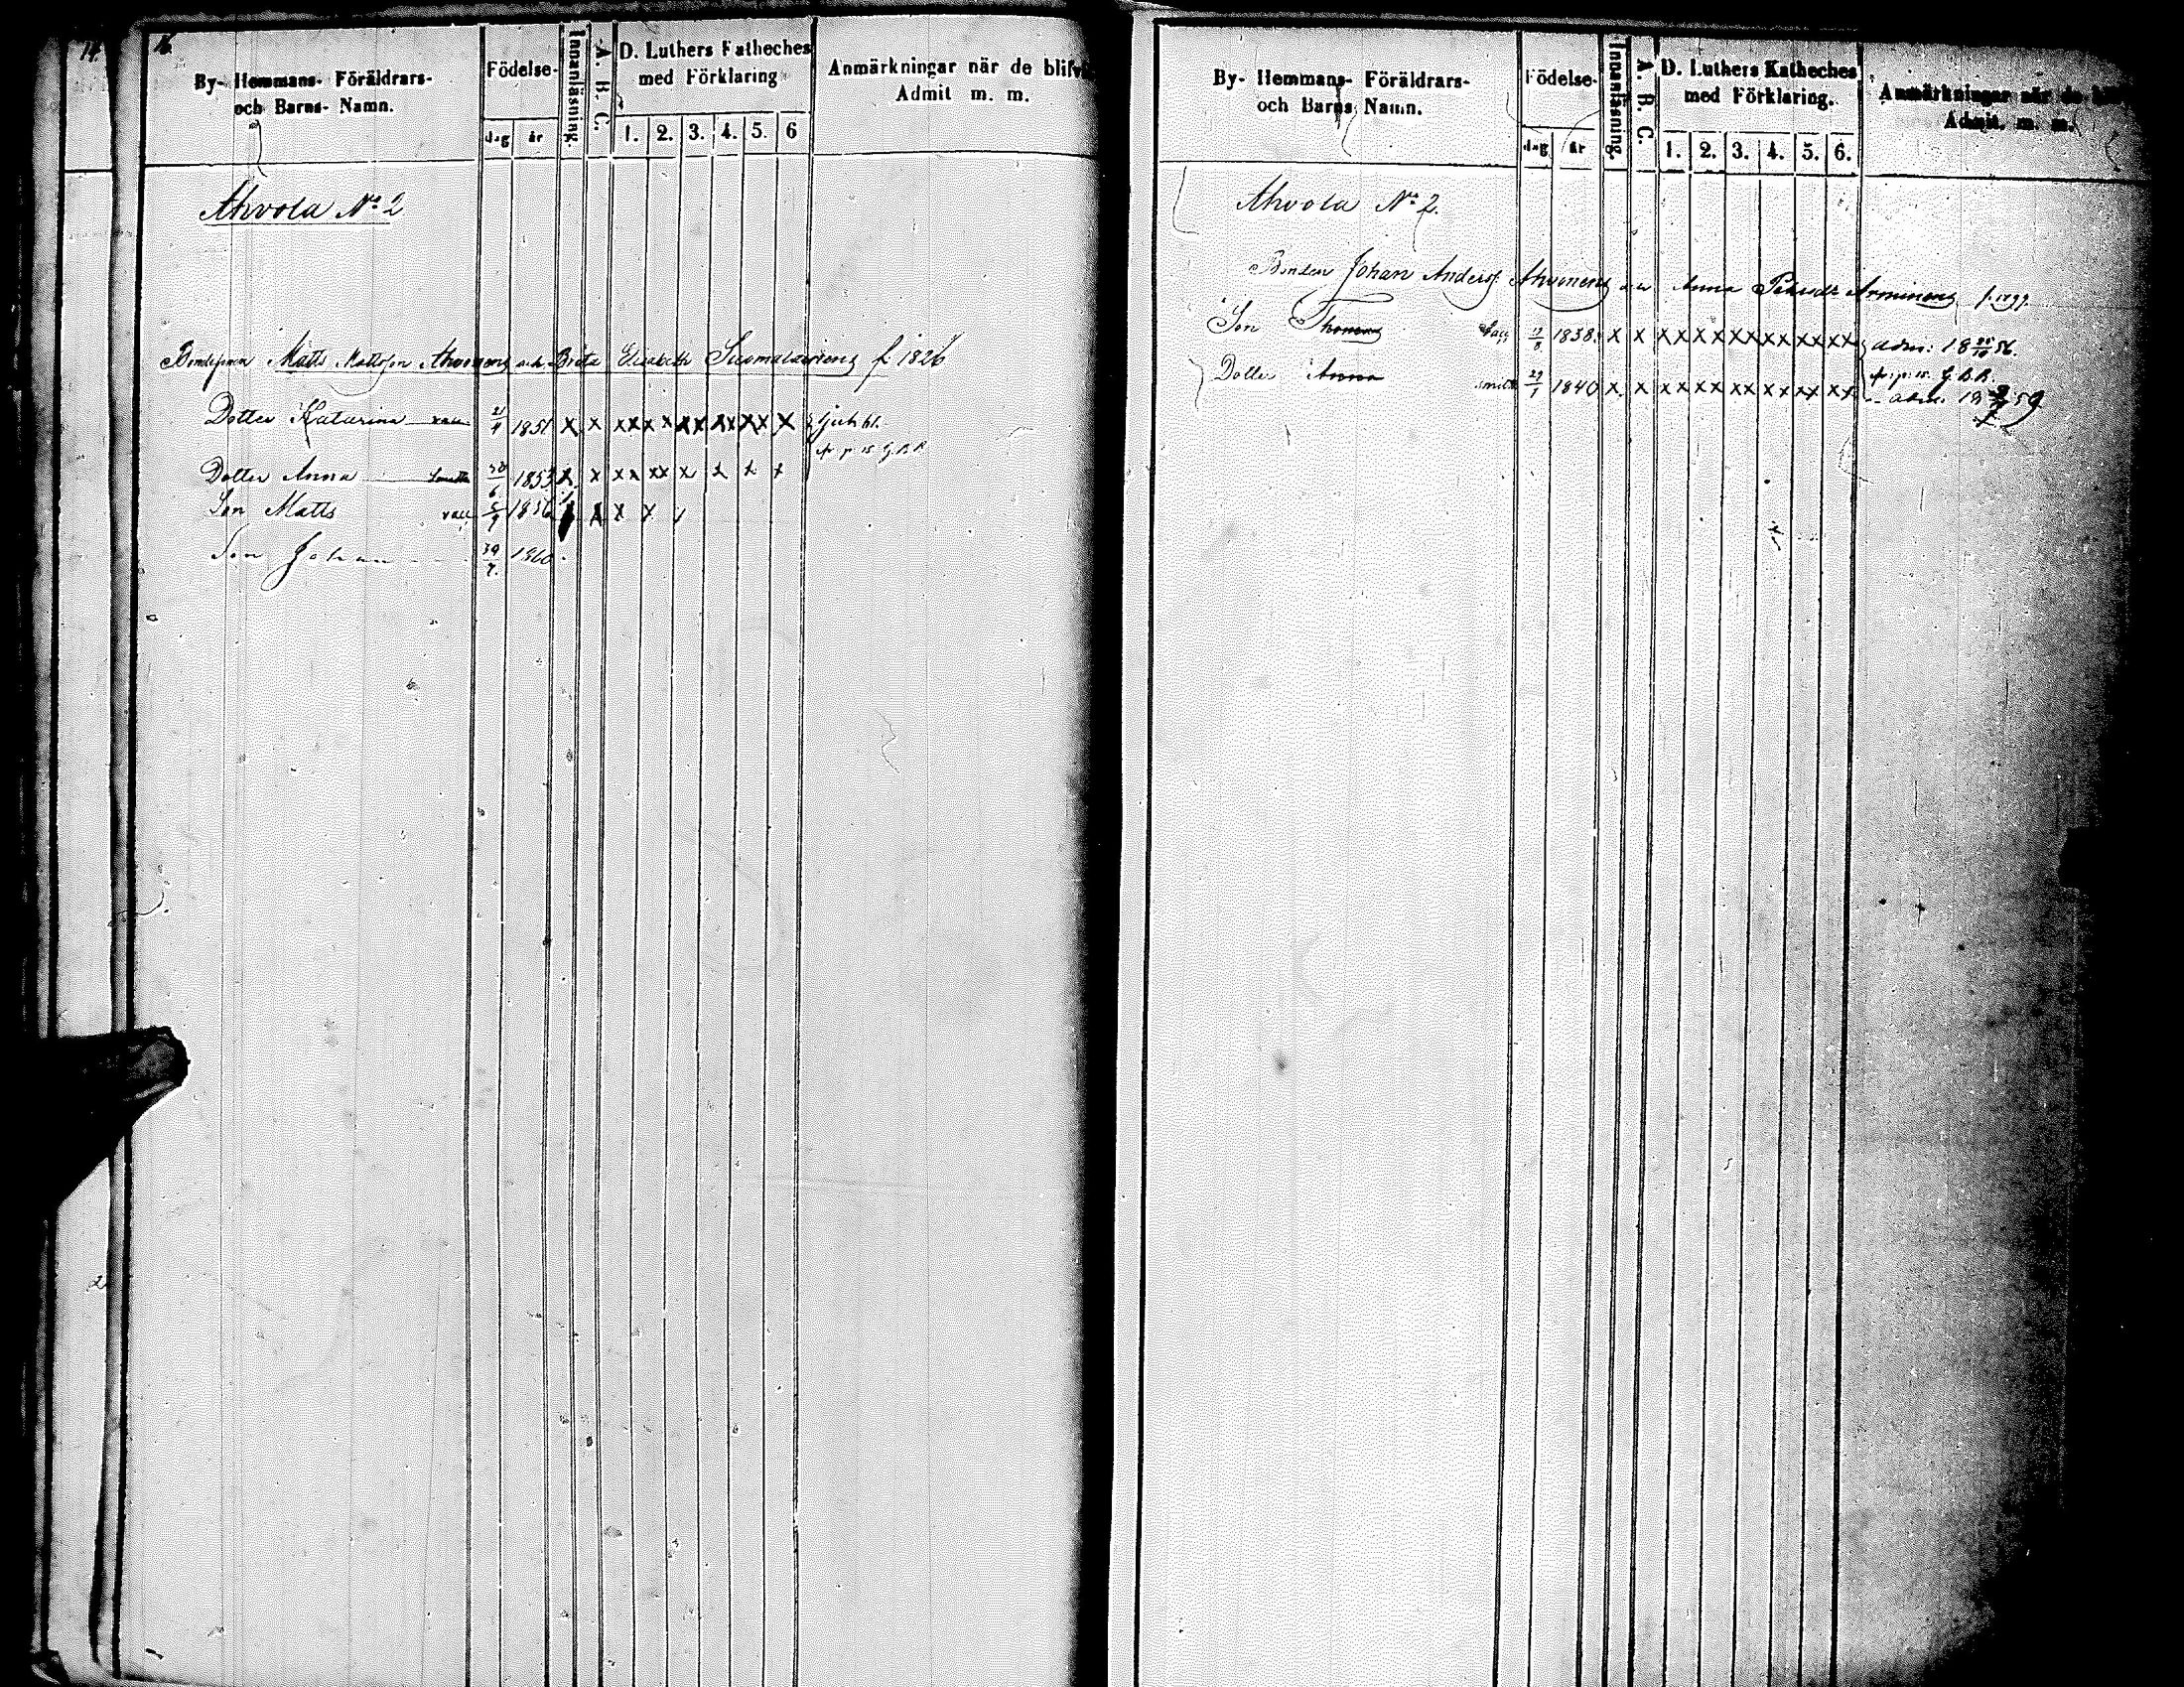 14.
16.
By- Hemmans- Föräldrars-
och Barns- Namn.
Födelse-
dag år
Innanläsning.
A. B. C.
D. Luthers Katheches
med Förklaring
1. 2. 3. 4. 5. 6
Anmärkningar när de blifvit
Admit m. m.
Ahvola No 2
Matts Mattsson Ahvonen och Brita Elisabeth Suomalainen f. 1826
Dotter Katarina vacc 21/4 1851 x x xx xx xx xx xx x
Dotter Anna 30/6 1853 x x xx xx x x x x
Son Matts vacc 5/9 1856 x x x
Son Johan 30/7. 1860
By- Hemmans- Föräldrars-
och Barns Namn.
Födelse-
dag år
Innanläsning.
A. B. C.
D. Luthers Katheches
med Förklaring.
1. 2. 3. 4. 5. 6.
Anmärkningar när de
Admit. m. m.
Ahvola No 2.
Bonden Johan Anders. Ahvonen Anna
Son Thomas vacc 12/8 1838. x x xx xx xx xx xx xx adm:
Dotter Anna 29/7 1840 x x xx xx xx xx xx xx